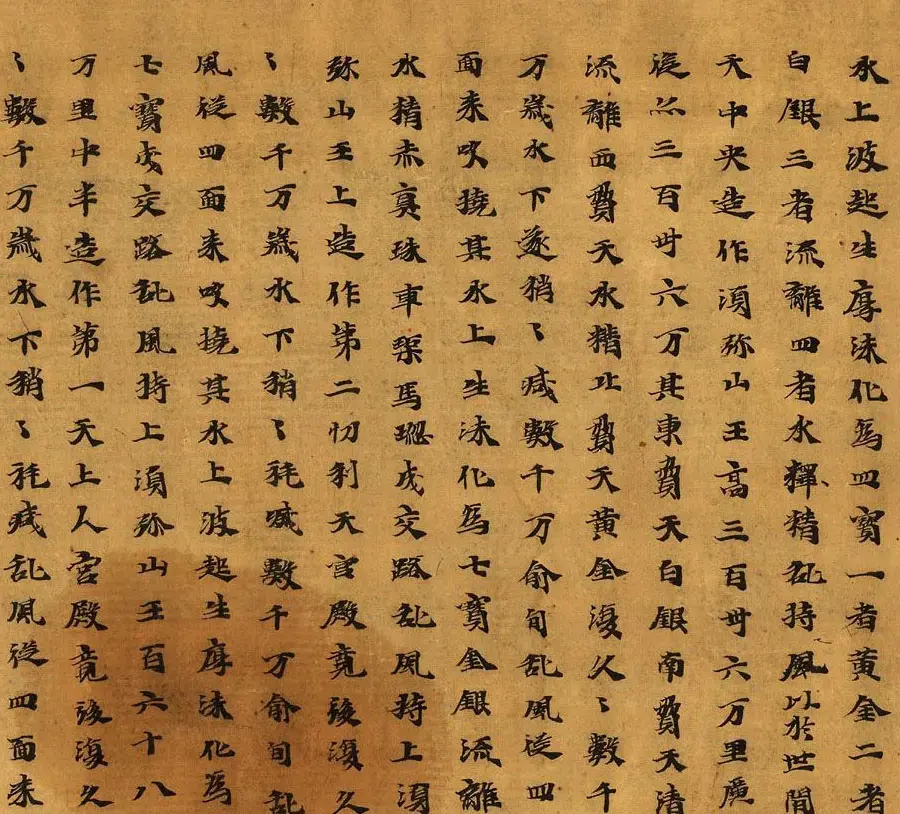 水上波起生厚沫化為四寶一者黃金二者
白銀三者流離四者水釋精乱持風以於世間
天中央造作須弥山王高三百卌六万里廣
從亦三百卌六万其東費天白銀南費天清
流離西費天水精北費天黃金復久〻數千
万歲水下遂稍〻減數千万俞旬乱風從四
面来吹撓其水上生沫化為七寶金銀流離
水精赤真珠車渠馬瑙成交路乱風持上須
弥山王上造作第二忉利天宮殿竟後復久
〻數千万歲水下稍〻耗減數千万俞旬乱
風從四面来吹撓其水上波起生厚沫化為
七寶成交路乱風持上須弥山王百六十八
万里中半造作第一天上人宮殿竟後復久
〻數千万歲水下稍〻耗減乱風從四面来